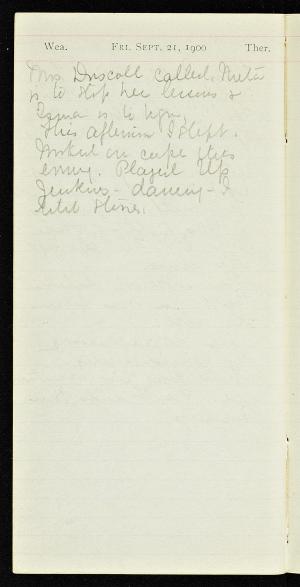 Wea. FRI. SEPT. 21, 1900 Ther.
Mrs. Driscoll called. Meta
is to stop her lessons &
is to begin.
This afternoon I slept.
Worked on cape this
evening. Played Up
Jenkins - dancing - &